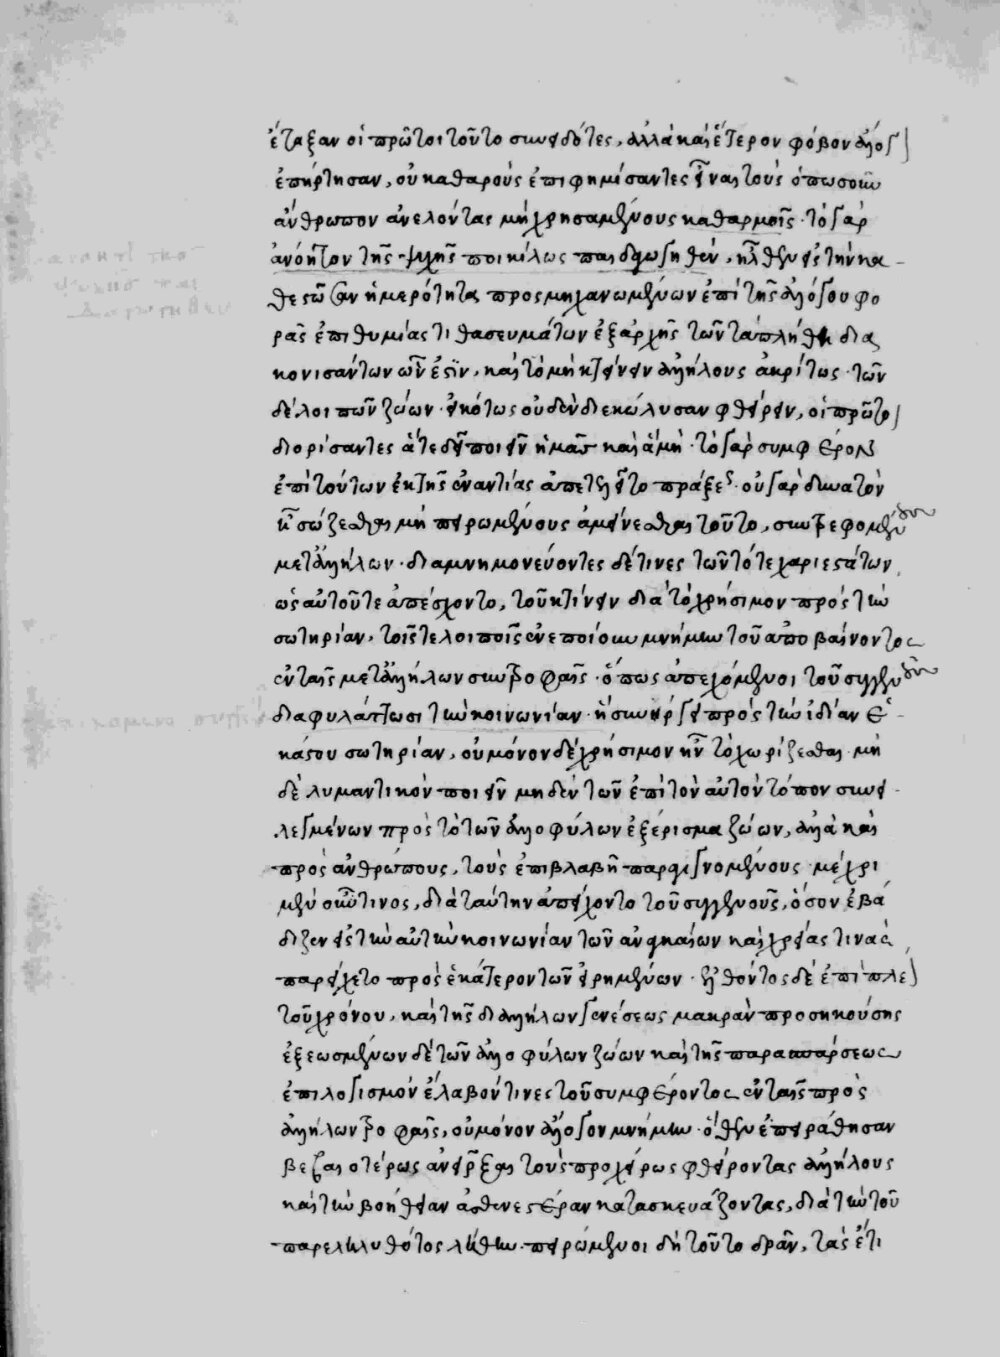 ἔταξαν οἱ πρῶτοι τοῦτο συνιδόντες, ἀλλὰ καὶ ἕτερον φόβον ἄλογ
ἐπήρτησαν, οὐ καθαροὺς ἐπιφημίσαντες εἶναι τοὺς ὁπωσοῦν
ἄνθρωπον ἀνελόντας μὴ χρησαμένους καθαρμοῖς· τὸ γὰρ
ἀνόητον τῆς ψυχῆς ποικίλως παιδαγωγηθὲν, ἦλθεν εἰς τὴν κα
θεστῶσαν ἡμερότητα προσμηχανωμένων ἐπὶ τῆς ἀλόγου φο
ρᾶς ἐπιθυμίας τιθασεύματα τῶν ἐξ ἀρχῆς τὰ πλήθη δια
κονισάντων ὧν ἐστὶν, καὶ τὸ μὴ κτείνειν ἀλλήλους ἀκρίτως· τῶν
δὲ λοιπῶν ζώων· εἰκότως οὐδὲν διεκώλυσαν φθείρειν, οἱ πρῶτοι
διορίσαντες ἅ τε δεῖ ποιεῖν ἡμᾶς καὶ ἃ μή· τὸ γὰρ συμφέρον
ἐπὶ τούτων ἐκ τῆς ἐναντίας ἀπετελεῖτο πράξεως· οὐ γὰρ δυνατὸν
ἦν σώζεσθαι μὴ πειρωμένους ἀμύνεσθαι τοῦτο, συντρεφομένους
μετ' ἀλλήλων· διαμνημονεύοντες δέ τινες τῶν τότε χαριεστάτων,
ὡς αὐτοῦ τε ἀπέσχοντο, τοῦ κτείνειν διὰ τὸ χρήσιμον πρὸς τὴν
σωτηρίαν, τοῖς τε λοιποῖς ἐνεποίουν μνήμην τοῦ ἀποβαίνοντος
ἐν ταῖς μετ' ἀλλήλων συντροφίαις· ὅπως ἀπεχόμενοι τοῦ συγγενοῦς
διαφυλάττωσι τὴν κοινωνίαν· ἣ συνήργει πρὸς τὴν ἰδίαν ἑ
κάστου σωτηρίαν, οὐ μόνον δὲ χρήσιμον ἦν τὸ χωρίζεσθαι μὴ
δὲ λυμαντικὸν ποιεῖν μηδὲν τῶν ἐπὶ τὸν αὐτὸν τόπον συνει
λεγμένων πρὸς τὸ τῶν ἀλλοφύλων ἐξέρισμα ζώων, ἀλλὰ καὶ
πρὸς ἀνθρώπους, τοὺς ἐπὶ βλάβῃ παραγιγνομένους· μέχρι
μὲν οὖν τινος, διὰ ταύτην ἀπείχοντο τοῦ συγγενοῦς, ὅσον ἐβά
διζεν εἰς τὴν αὐτὴν κοινωνίαν τῶν ἀναγκαίων καὶ χρείας τινὰς
παρείχετο πρὸς ἑκάτερον τῶν εἰρημένων· ἐλθόντος δὲ ἐπὶ πλέ
τοῦ χρόνου, καὶ τῆς δι' ἀλλήλων γενέσεως μακρὰν προσηκούσης
ἐξεωσμένων δὲ τῶν ἀλλοφύλων ζώων καὶ τῆς παρασπάρσεως
ἐπιλογισμὸν ἔλαβόν τινες τοῦ συμφέροντος ἐν ταῖς πρὸς
ἀλλήλων τροφαῖς, οὐ μόνον ἄλογον μνήμην· ὅθεν ἐπειράθησαν
βεβαιοτέρως ἀνεῖρξαι τοὺς προχείρως φθείροντας ἀλλήλους
καὶ τὴν βοήθειαν ἀσθενεστέραν κατασκευάζοντας, διὰ τὴν τοῦ
παρεληλυθότος λήθην· πειρώμενοι δὴ τοῦτο δρᾶν, τὰς ἔτι